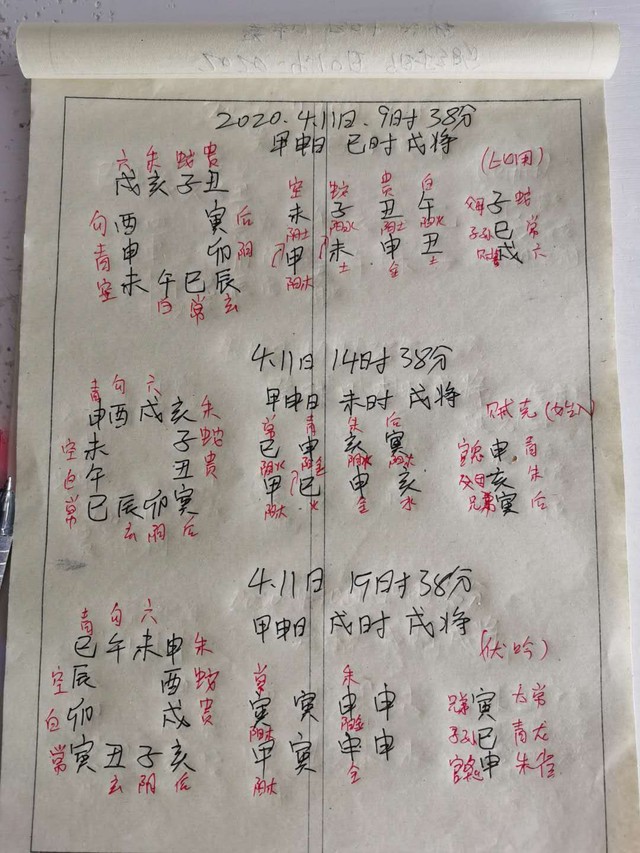 2020.4.11日.9日寸38分
甲申日 巳时 戌将
(比用)
六 朱 蛇 贵
戌 亥 子 丑
空 蛇 贵 白
勾 酉 寅 后
未 子 丑 午
子 蛇
阳水 阴土 阳火
青 申 卯 阴
甲 未 申 丑
子孙 巳 常
空 未 午 巳 辰
阳木 土 金 土
戌 六
白 常 玄
4.11日 14日寸38分
甲申日 未时 戌将
青 勾 六
申 酉 戌 亥 朱
常 青 朱 后
空 未 子 蛇
巳 申 亥 寅
官鬼 申 青
阴火 阳金 阴水 阳木
白 午 丑 贵
甲 巳 申 亥
父母 亥 朱
常 巳 辰 卯 寅
阳木 火 金 水
兄弟 寅 后
玄 阴 后
4.11日 19日寸38分
甲申日 戌时 戌将
(伏吟)
青 勾 六
巳 午 未 申 朱
空 辰 酉 蛇
常 朱
寅 寅 申 申
兄弟 寅 太常
白 卯 戌 贵
阳木 阳金
子孙 巳 青龙
常 寅 丑 子 亥
甲 寅 申 申
官鬼 申 朱雀
玄 阴 后
阳木 金